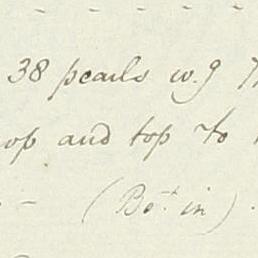 38 pearls w.g
and top To
(Bot in)